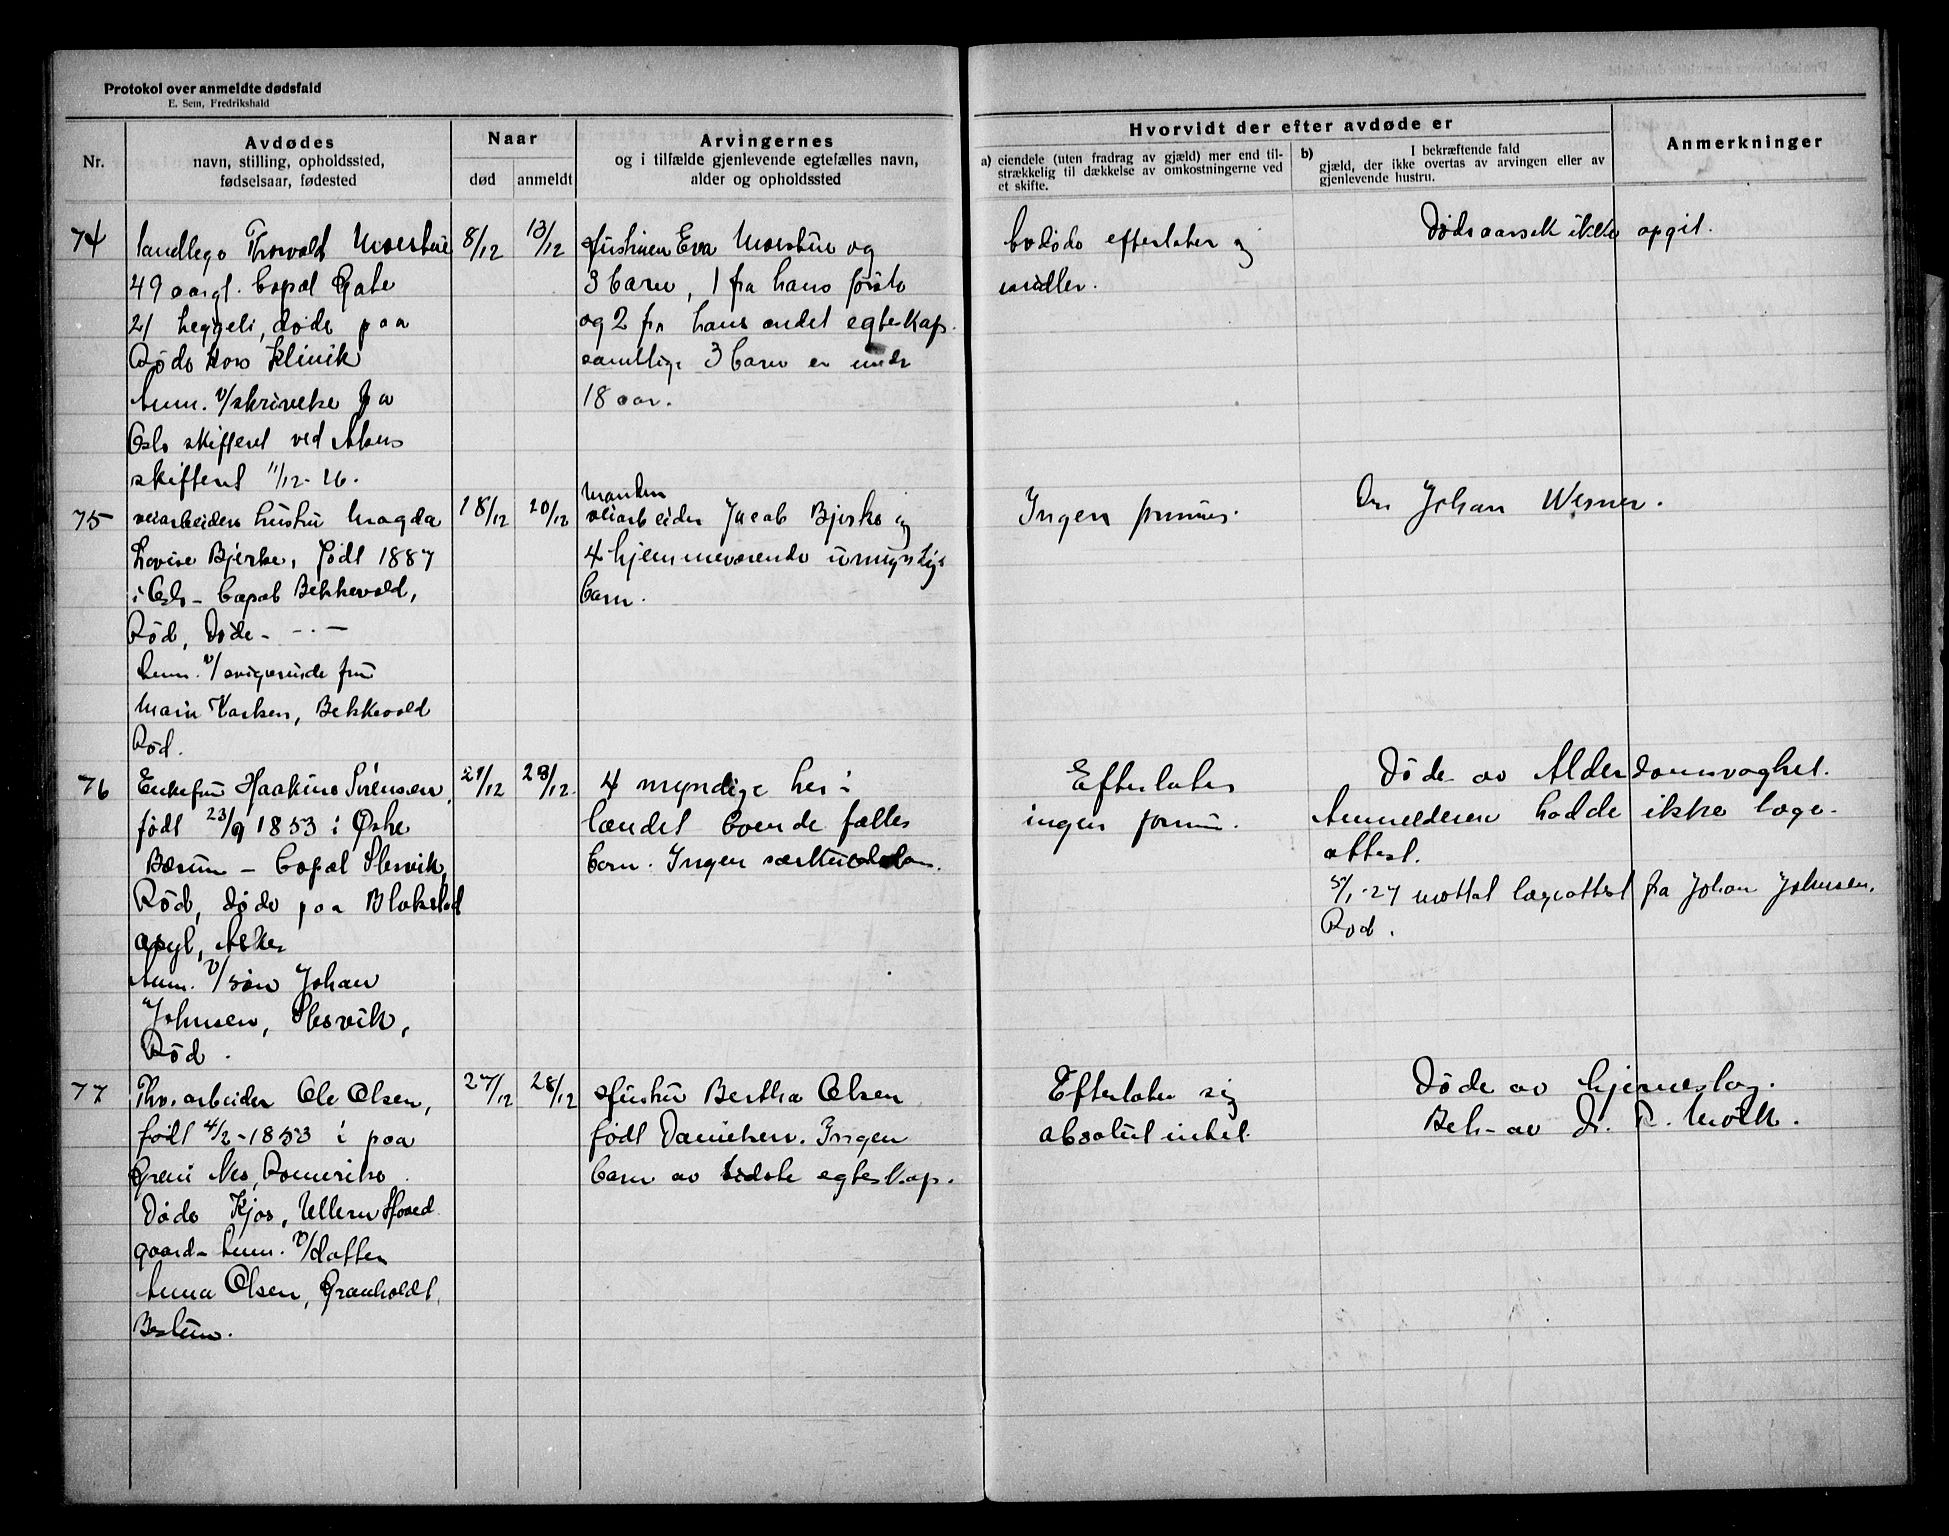 Protokol over anmeldte dødsfald
E. Sem, Fredrikshald
Nr.
Avdødes
navn, stilling, opholdssted,
fødselsaar, fødested
Naar
død
anmeldt
Arvingernes
og i tilfælde gjenlevende egtefælles navn,
alder og opholdssted
Hvorvidt der efter avdøde er
a) eiendele (uten fradrag av gjæld) mer end til-
strækkelig til dækkelse av omkostningerne ved
et skifte.
b) I bekræftende fald
gjæld, der ikke overtas av arvingen eller av
gjenlevende hustru.
Anmerkninger
74
tandlege Thorvald Moestue
49 aar gl. bopæl Gate
21 Heggeli, døde paa
Røde Kors Klinik
Anm. v/ skrivelse fra
Oslo skifteret ved Akers
skifteret 11/12-26.
8/12
13/12
Hustruen Eva Moestue og
3 barn, 1 fra hans første
og 2 fra hans andet egteskap.
samtlige 3 barn er under
18 aar.
efterlater ej
midler.
Dødsaarsak ikke opgit.
75
veiarbeiders hustru Magda
Lovise Bjerke, født 1887
i Oslo - bopæl Bekkevold,
Rød, Døde - - . -
Anm. v/ svigerinde fru
Marie Karlsen, Bekkevold
Rød.
18/12
20/12
Manden
veiarbeider Jacob Bjerke og
4 hjemmeværende umyndige
barn.
Ingen formue.
Dr Johan Werner.
76
Enkefru Haakine Sørensen,
født 23/9 1853 i Østre
Bærum - bopæl Slesvik,
Rød, døde paa Blakstad
asyl, Asker
Anm. v/ søn Johan
Johnsen, Slesvik,
Rød.
21/12
28/12.
4 myndige her i
landet boende fælles
barn. Ingen særkuldsbarn.
Efterlater
ingen formue.
Døde av Alderdomsvaghet.
Anmelderen hadde ikke læge-
attest.
5/1-27 mottat lægeattest fra Johan Johnsen,
Rød.
77
arbeider Ole Olsen,
født 4/2-1853 i paa
Greni Nes, Romerike.
Døde Kjos, Ullern Hoved
gaard - Anm. v/ datter
Anna Olsen, Granholdt,
Bestum.
27/12
28/12
Hustru Bertha Olsen
født Danielsen. Ingen
barn av sidste egteskap.
Efterlater sig
absolut intet.
Døde av hjerneslag.
Beh- av dr. R. Mölk.